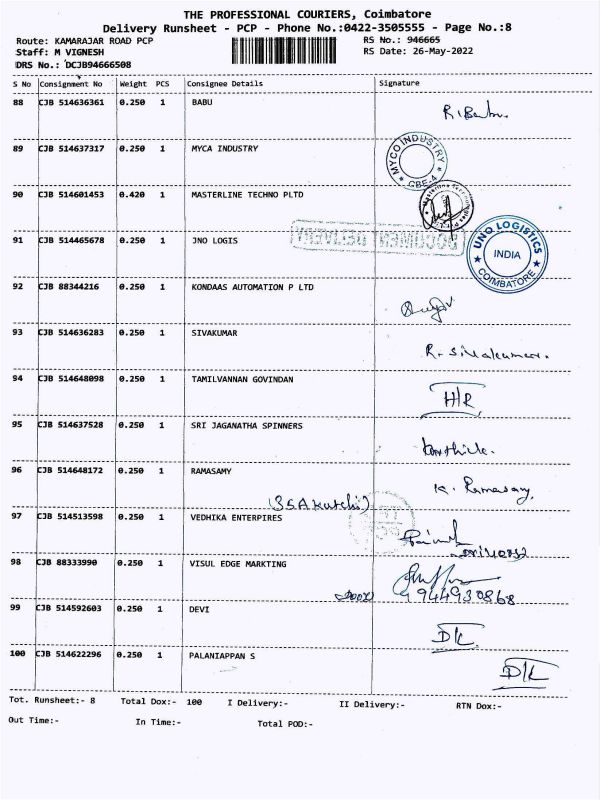 THE PROFESSIONAL COURIERS, Coimbatore
Delivery Runsheet - PCP - Phone No.:0422-3505555 - Page No.:8
Route: KAMARAJAR ROAD PCP RS No.: 946665
Staff: M VIGNESH RS Date: 26-May-2022
DRS No.: DCJB94666508
S No Consignment No Weight PCS Consignee Details Signature
88 CJB 514636361 0.250 1 BABU R.Babu.
89 CJB 514637317 0.250 1 MYCA INDUSTRY
MYCO INDUSTRY
CBE-4
90 CJB 514601453 0.420 1 MASTERLINE TECHNO PLTD
91 CJB 514465678 0.250 1 JNO LOGIS DOCUMENT DELIVERY
UNO LOGISTICS
INDIA
COIMBATORE
92 CJB 88344216 0.250 1 KONDAAS AUTOMATION P LTD
93 CJB 514636283 0.250 1 SIVAKUMAR R. Sivakumar.
94 CJB 514648098 0.250 1 TAMILVANNAN GOVINDAN H/R
95 CJB 514637528 0.250 1 SRI JAGANATHA SPINNERS
96 CJB 514648172 0.250 1 RAMASAMY K. Ramasamy.
97 CJB 514513598 0.250 1 VEDHIKA ENTERPIRES
98 CJB 88333990 0.250 1 VISUL EDGE MARKTING
9944930868
99 CJB 514592603 0.250 1 DEVI D/L
100 CJB 514622296 0.250 1 PALANIAPPAN S D/L
Tot. Runsheet:- 8 Total Dox:- 100 I Delivery:- II Delivery:- RTN Dox:-
Out Time:- In Time:- Total POD:-